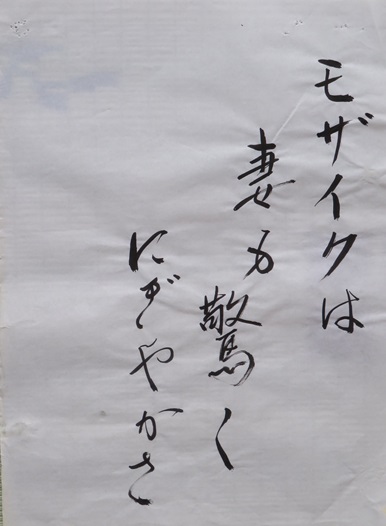 モザイクは
妻も驚く
にぎやかさ